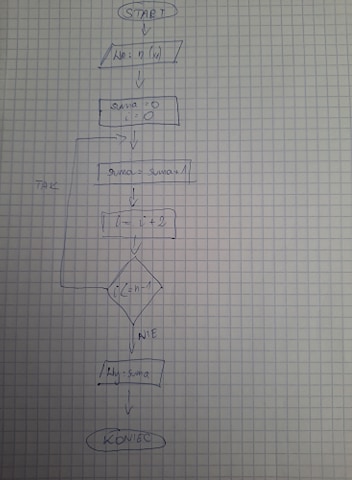 START
We: n (N)
suma = 0
i = 0
suma = suma + 1
i = i + 2
i <= n-1
TAK
NIE
Wy: suma
KONIEC